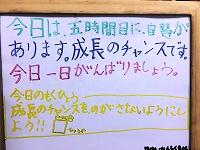 今日は、五時間目に、自習が
あります。成長のチャンスです。
今日一日がんばりましょう。
今日のもくひょう
成長のチャンスをのがさないようにし
よう!!